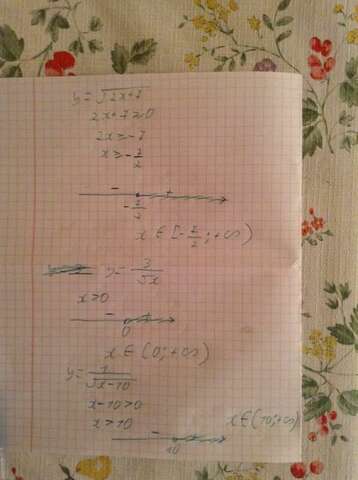 y = √2x+7
2x+7≥0
2x≥-7
x≥-7/2
- +
-7/2
x ∈ [-7/2; +∞)
y = 3/√x
x>0
- +
0
x ∈ (0; +∞)
y = 1/√x-10
x-10>0
x>10
x ∈ (10; +∞)
-
10